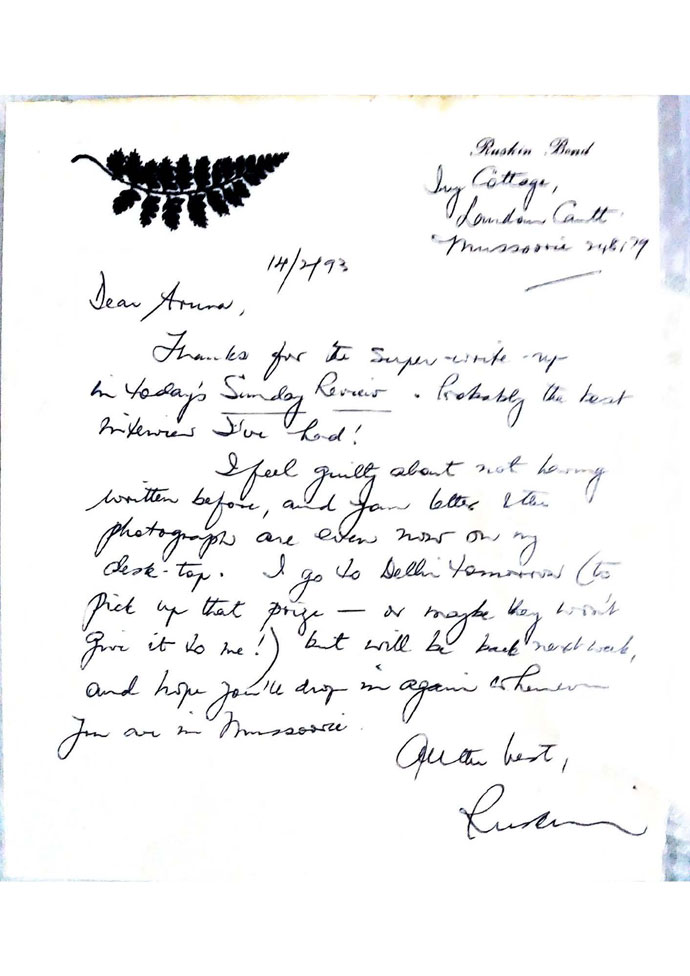 Ruskin Bond
Ivy Cottage,
Landour Cantt.
Mussoorie 248179
14/2/93
Dear Aruna,
Thanks for the super-write-up
in today's Sunday Review. Probably the best
interview I've had!
I feel guilty about not having
written before, and your letter & the
photograph are even now on my
desk-top. I go to Delhi tomorrow (to
pick up that prize — or maybe they won't
give it to me!) but will be back next week,
and hope you'll drop in again whenever
you are in Mussoorie.
All the best,
Ruskin